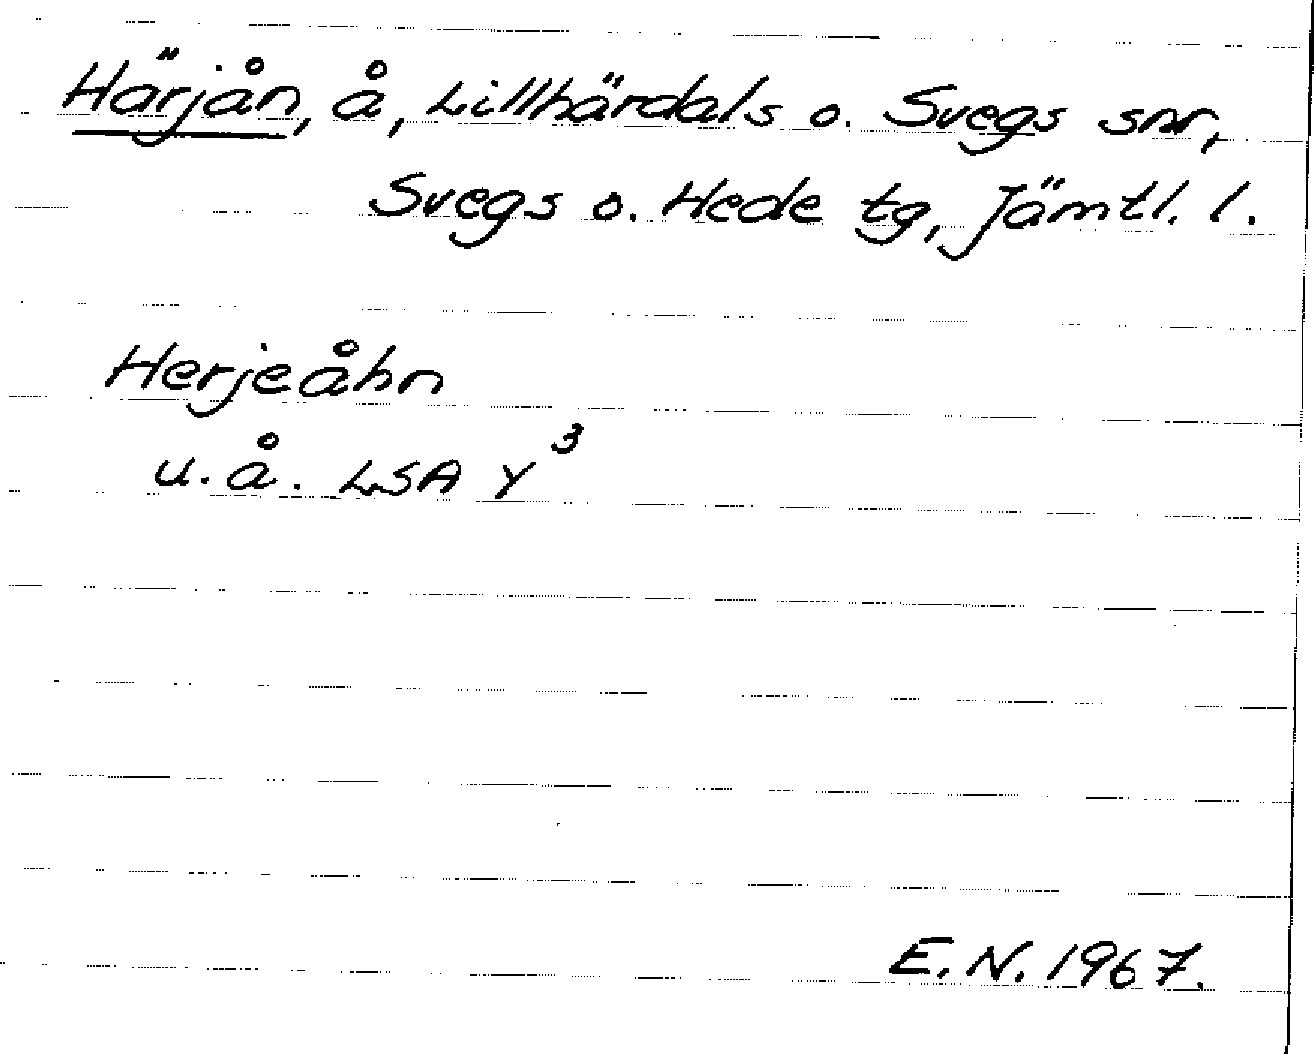 Härjån, å, Lillhärdals o. Svegs snr,
Svegs o. Hede tg, Jämtl. l.
Herjeåhn
u. å. LSA Y³
E. N. 1967.